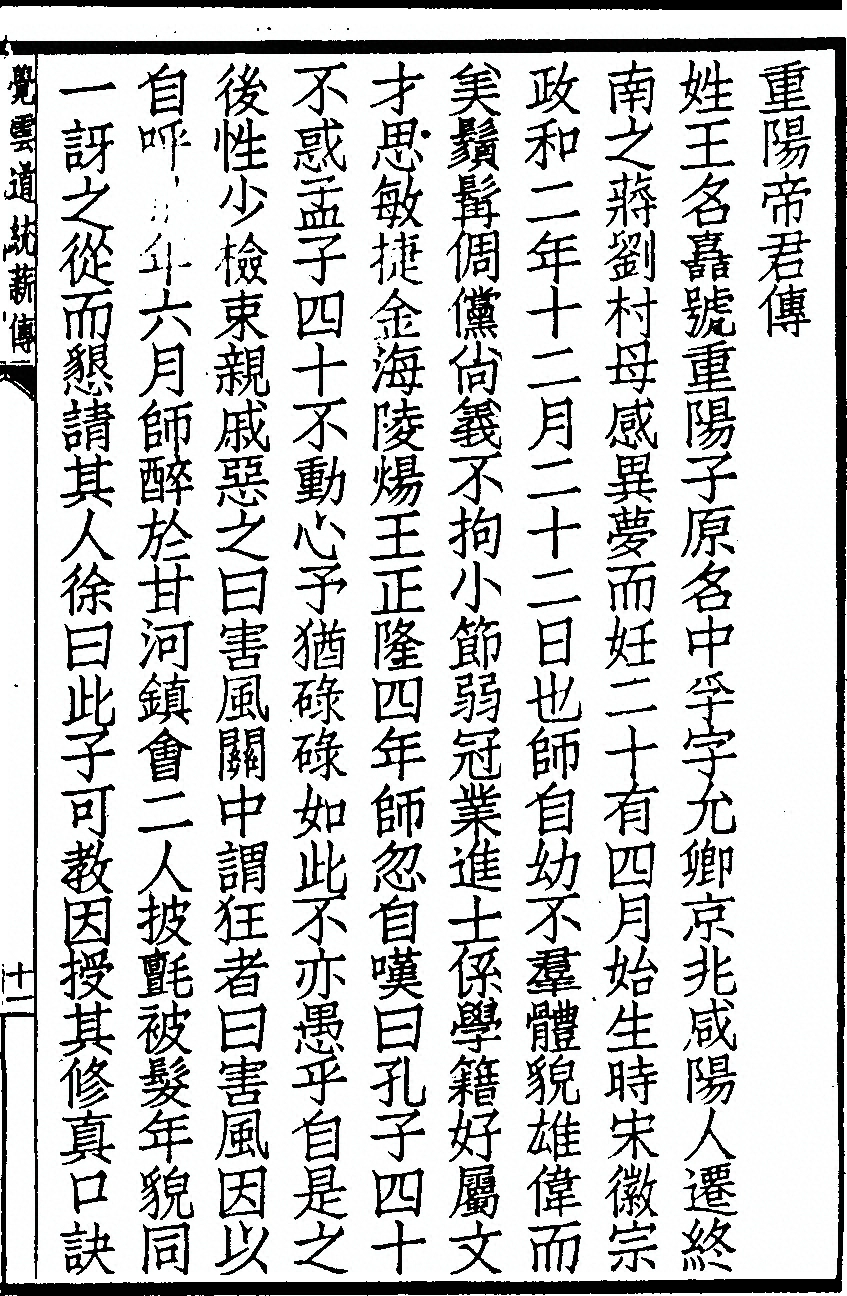 重陽帝君傳
姓王名嚞號重陽子原名中孚字允卿京兆咸陽人遷終
南之蔣劉村母感異夢而妊二十有四月始生時宋徽宗
政和二年十二月二十二日也師自幼不羣體貌雄偉而
美鬚髯倜儻尙義不拘小節弱冠業進士係學籍好屬文
才思敏捷金海陵煬王正隆四年師忽自嘆曰孔子四十
不惑孟子四十不動心予猶碌碌如此不亦愚乎自是之
後性少檢束親戚惡之曰害風關中謂狂者曰害風因以
自呼年六月師醉於甘河鎮會二人披氈被髮年貌同
一訝之從而懇請其人徐曰此子可教因授其修真口訣
覺雲道統薪傳
十一